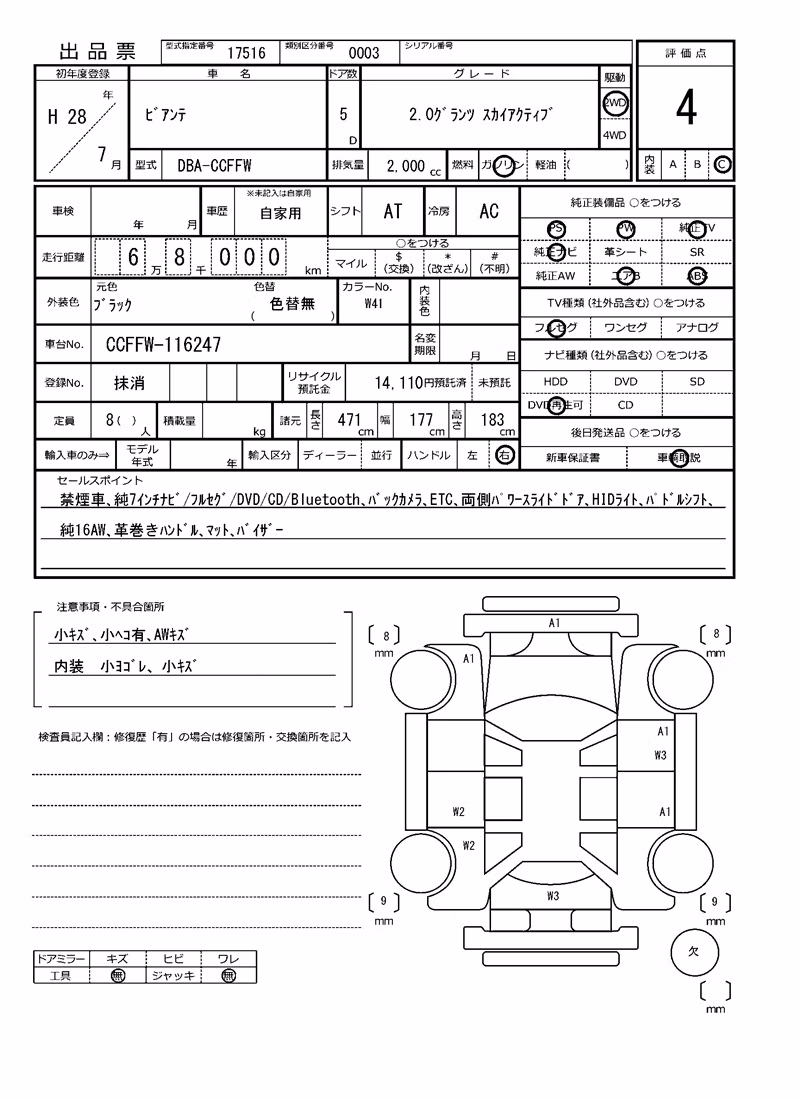 出品票 型式指定番号 17516 類別区分番号 0003 シリアル番号
初年度登録 車 名 ドア数 グレード 駆動 評価点
H 28 年 7 月 ビアンテ 5 D 2.0グランツ スカイアクティブ 2WD 4WD 4
型式 DBA-CCFFW 排気量 2,000 cc 燃料 ガソリン 軽油 ( ) 内装 A B C
車検 年 月 車歴 ※未記入は自家用 自家用 シフト AT 冷房 AC
走行距離 6 万 8 千 0 0 0 km ○をつける
マイル $ (交換) * (改ざん) # (不明)
外装色 元色 ブラック 色替 ( 色替無 ) カラーNo. W41 内装色
車台No. CCFFW-116247 名変期限 月 日
登録No. 抹消 リサイクル預託金 14,110円預託済 未預託
定員 8( ) 人 積載量 kg 諸元 長さ 471 cm 幅 177 cm 高さ 183 cm
輸入車のみ⇒ モデル年式 年 輸入区分 ディーラー 並行 ハンドル 左 右
純正装備品 ○をつける
PS PW 純正TV
純正ナビ 革シート SR
純正AW エアB ABS
TV種類(社外品含む)○をつける
フルセグ ワンセグ アナログ
ナビ種類(社外品含む)○をつける
HDD DVD SD
DVD再生可 CD
後日発送品 ○をつける
新車保証書 車輌取説
セールスポイント
禁煙車、純7インチナビ/フルセグ/DVD/CD/Bluetooth、バックカメラ、ETC、両側パワースライドドア、HIDライト、パドルシフト、
純16AW、革巻きハンドル、マット、バイザー
注意事項・不具合箇所
小キズ、小ヘコ有、AWキズ
内装 小ヨゴレ、小キズ
検査員記入欄:修復歴「有」の場合は修復箇所・交換箇所を記入
ドアミラー キズ ヒビ ワレ
工具 無 ジャッキ 無
A1
8 mm
8 mm
A1
A1
W3
W2
A1
W2
W3
9 mm
9 mm
欠
mm